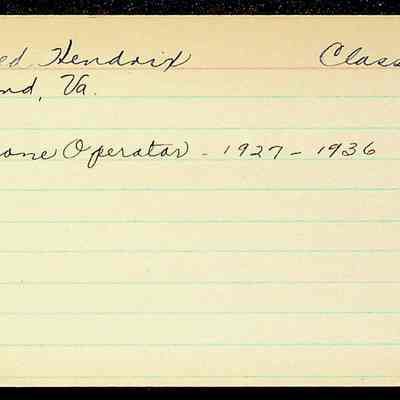 ed Hendrix Class
nd, Va.
one Operator - 1927 - 1936